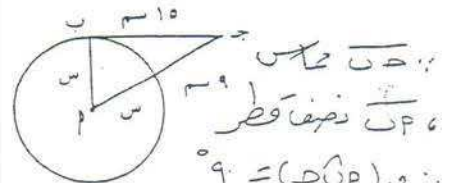 ب ١٥ سم ج
س ٩ سم
م س
∵ جـ ب مماس
، م ب نصف قطر
∴ ق (م ب جـ) = ٩٠°